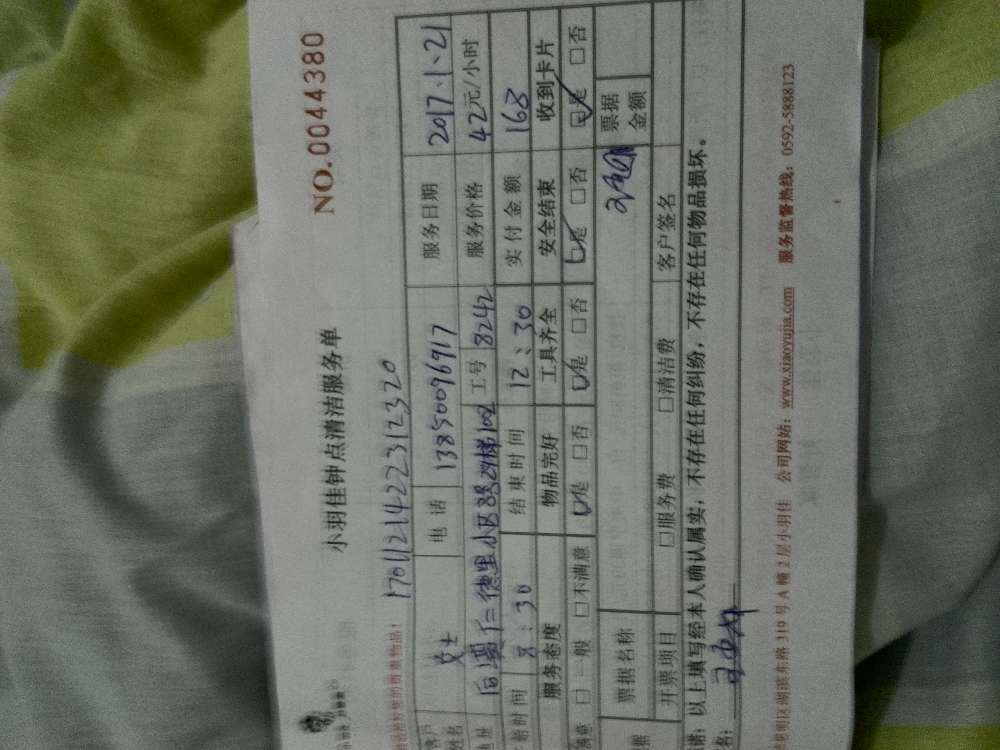 NO.0044380
小羽佳钟点清洁服务单
1701121422312320
好您的贵重物品！
客户姓名 女士 电话 13850096917 服务日期 2017.1.21
地址 仁德里小区8号29梯1002 工号 8242 服务价格 42元/小时
始时间 8:30 结束时间 12:30 实付金额 168
服务态度 物品完好 工具齐全 安全结束 收到卡片
满意 □一般 □不满意 ☑是 □否 ☑是 □否 ☑是 □否 ☑是 □否
票据名称 票据金额
据 开票项目 □服务费 □清洁费 客户签名
诺：以上填写经本人确认属实，不存在任何纠纷，不存在任何物品损坏。
名：
思明区湖滨东路319号A幢2层小羽佳 公司网站：www.xiaoyujia.com 服务监督热线：0592-5888123